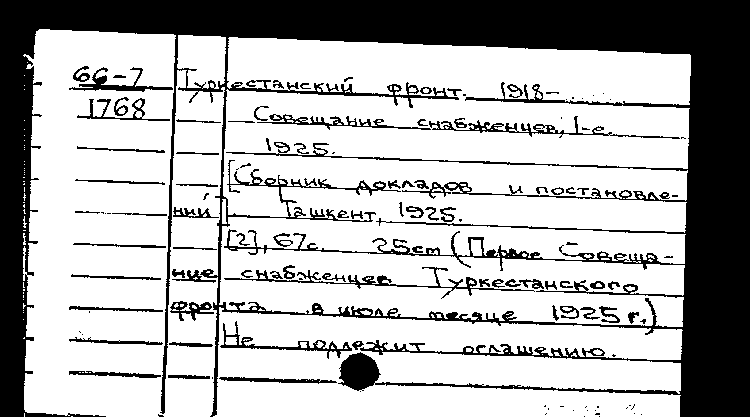 66-7 Туркестанский фронт. 1918-
1768 Совещание снабженцев, I-е.
1925.
[Сборник докладов и постановле-
ний]. Ташкент, 1925.
[2], 67с. 25cm (Первое Совеща-
ние снабженцев Туркестанского
фронта в июле месяце 1925 г.)
Не подлежит оглашению.